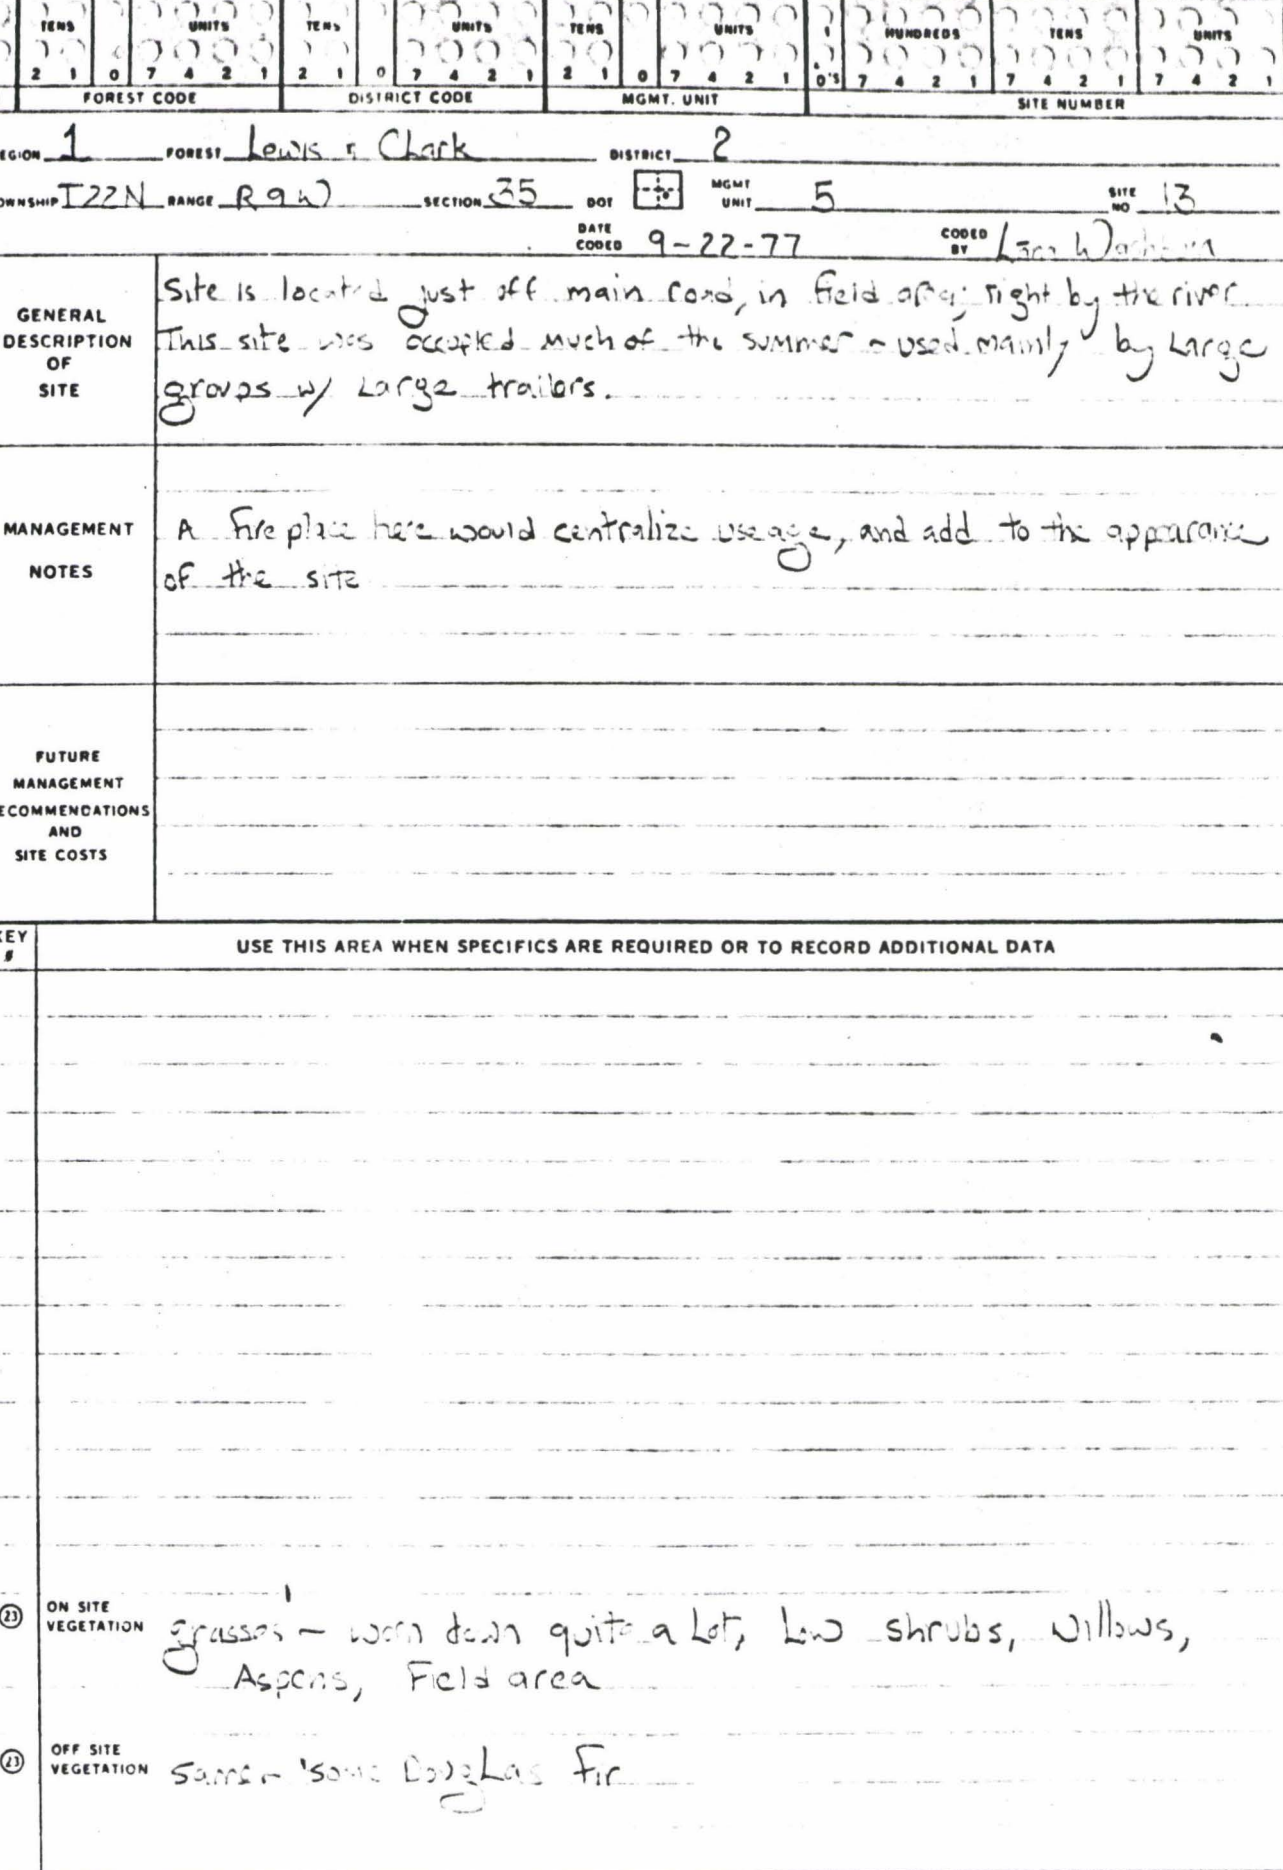 TENS UNITS TENS UNITS TENS UNITS HUNDREDS TENS UNITS
2 1 0 7 4 2 1 2 1 0 7 4 2 1 2 1 0 7 4 2 1 0'S 7 4 2 1 7 4 2 1 7 4 2 1
FOREST CODE DISTRICT CODE MGMT. UNIT SITE NUMBER
EGION 1 FOREST Lewis & Clark DISTRICT 2
OWNSHIP T22N RANGE R9W SECTION 35 DOT MGMT UNIT 5 SITE NO 13
DATE CODED 9-22-77 CODED BY
GENERAL DESCRIPTION OF SITE
Site is located just off main road, in field area; right by the river.
This site was occupied much of the summer - used mainly by Large
groups w/ Large trailors.
MANAGEMENT NOTES
A fireplace here would centralize useage, and add to the appearance
of the site
FUTURE
MANAGEMENT
ECOMMENDATIONS
AND
SITE COSTS
KEY # USE THIS AREA WHEN SPECIFICS ARE REQUIRED OR TO RECORD ADDITIONAL DATA
23 ON SITE VEGETATION grasses - worn down quite a Lot, Low shrubs, Willows,
Aspens, Field area
23 OFF SITE VEGETATION same - some Douglas Fir